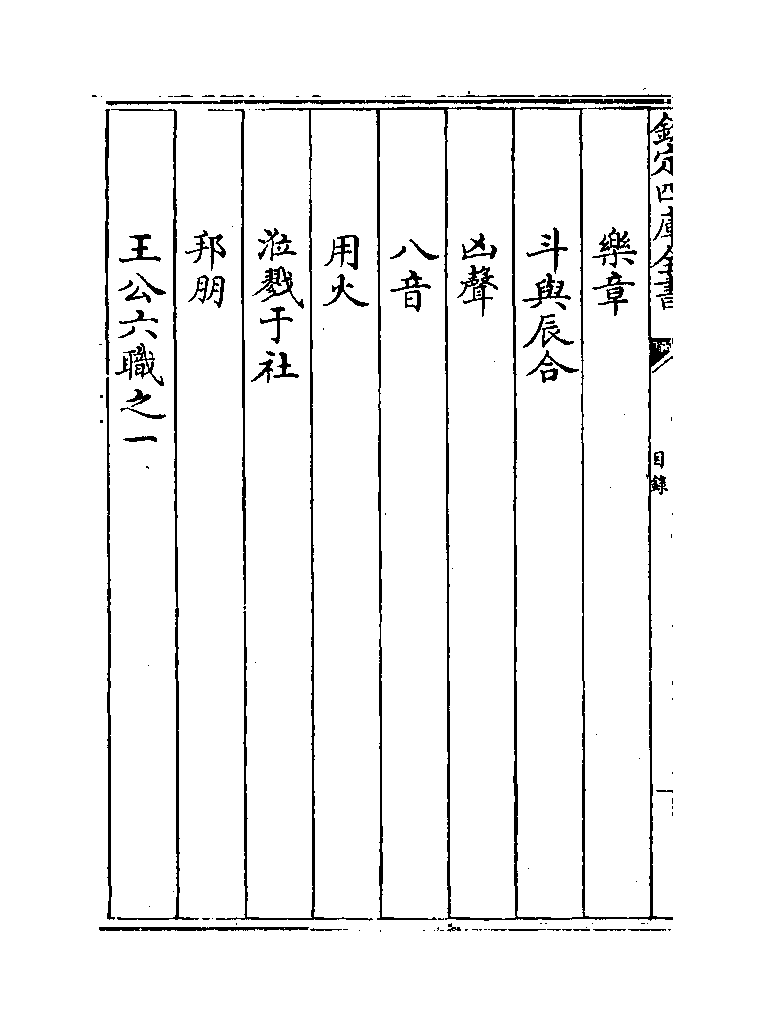 欽定四庫全書
目錄
樂章
斗與辰合
凶聲
八音
用火
涖戮于社
邦朋
王公六職之一